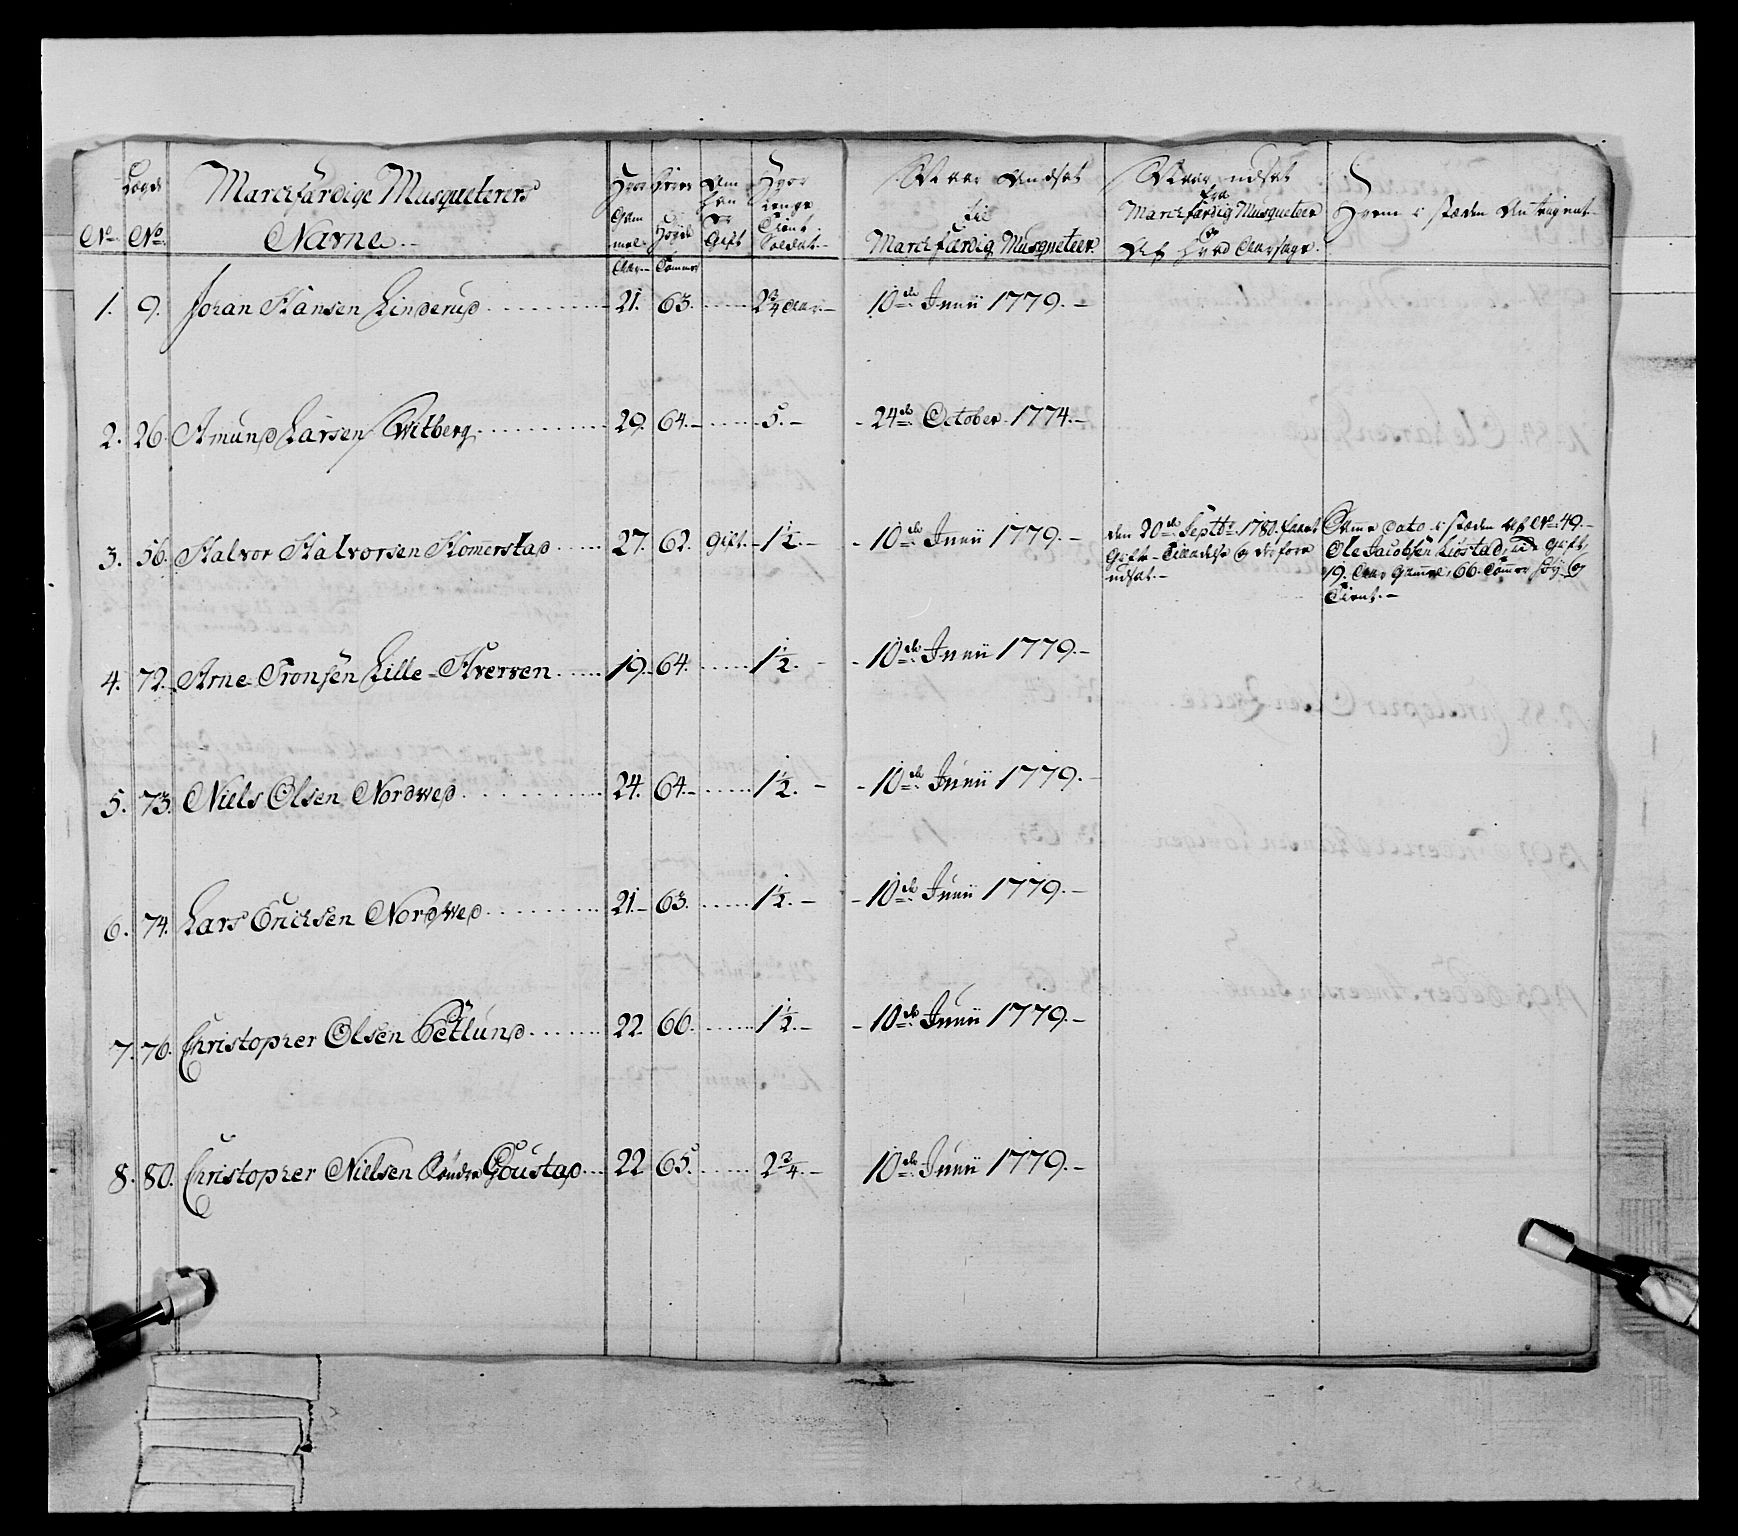 No.
Lægds
No.
Marchfærdige Musqueterers
Navne
Hvor
Gam
mel
Aar
Hvor
Høyd
Tommer
Om
han
er
Gift
Hvor
Længe
Tient
Soldat
Naar Andsat
til
Marchfærdig Musqueteer
Naar udsat
fra
Marchfærdig Musqueteer
og
Af hvad Aarsage.
Hvem i stæden Antagent
1. 9. Johan Hansen Linderud 21. 63. 2 3/4 Aar.- 10de Junii 1779.-
2. 26. Amund Larsen Kvitberg 29. 64.- 5.- 24de October 1774.-
3. 56. Halvor Halvorsen Homerstad 27. 62. Gift.- 1 1/2.- 10de Junii 1779.-
den 20de Septbr 1780. faaet
Gifte-Tilladelse og derfore
udsat.-
Samme dato i stæden af No 49.-
Ole Jacobsen Liøstad, udi Gift,
19. Aar Gammel, 66. Tommer høy og
Tient.-
4. 72. Arne Tronsen Lille-Hverven 19. 64. 1 1/2. - 10de Junii 1779.-
5. 73. Niels Olsen Nordwed 24. 64.- 1 1/2. - 10de Junii 1779.-
6. 74. Lars Erichsen Nordwed 21.- 63. 1 1/2.- 10de Junii 1779.-
7. 76. Christopher Olsen Petlund 22. 66. 1 1/2.- 10de Junii 1779.-
8. 80. Christopher Nielsen Søndre Goustad 22 65. 2 3/4.- 10de Junii 1779.-